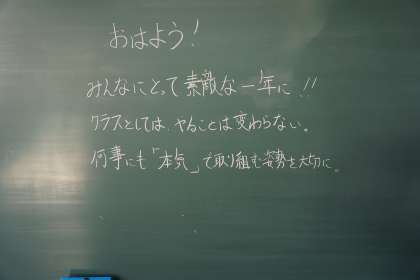 おはよう!
みんなにとって素敵な一年に!!
クラスとしては、やることは変わらない。
何事にも「本気」で取り組む姿勢を大切に。